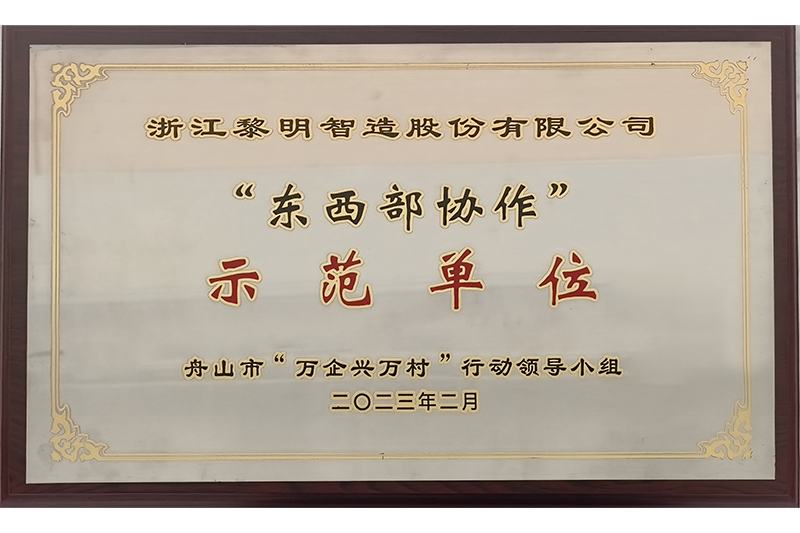 浙江黎明智造股份有限公司
“东西部协作”
示范单位
舟山市“万企兴万村”行动领导小组
二〇二三年二月